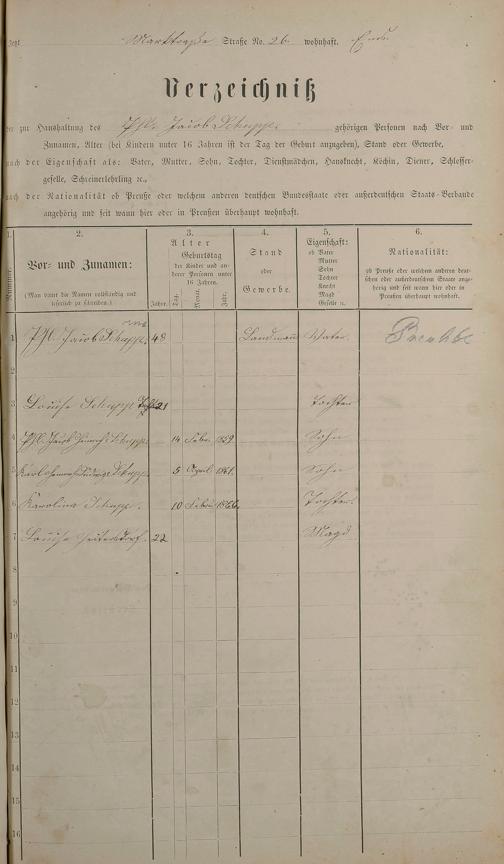 Jetzt Marktstraße Straße No. 26 wohnhaft.
Verzeichniß
der zur Haushaltung des Phl. Jacob Schupp gehörigen Personen nach Vor- und
Zunamen, Alter (bei Kindern unter 16 Jahren ist der Tag der Geburt anzugeben), Stand oder Gewerbe,
nach der Eigenschaft als: Vater, Mutter, Sohn, Tochter, Dienstmädchen, Hausknecht, Köchin, Diener, Schlosser-
geselle, Schreinerlehrling ꝛc.,
nach der Nationalität ob Preuße oder welchem anderen deutschen Bundesstaate oder außerdeutschen Staats-Verbande
angehörig und seit wann hier oder in Preußen überhaupt wohnhaft.
1. 2. 3. 4. 5. 6.
Nummer. Vor- und Zunamen: Alter Stand oder Gewerbe. Eigenschaft: Nationalität:
(Man bittet die Namen vollständig und leserlich zu schreiben.)
Jahre.
Geburtstag der Kinder und anderer Personen unter 16 Jahren.
Tag. Monat. Jahr.
ob Vater
Mutter
Sohn
Tochter
Knecht
Magd
Geselle u.
ob Preuße oder welchem anderen deut-
schen oder außerdeutschen Staate ange-
hörig und seit wann hier oder in
Preußen überhaupt wohnhaft.
1 Phl. Jacob Schupp. 48 Landmann Vater
2
3 Louise Schupp 21 Tochter
4 Phl. Jacob Heinrich Schupp 14 Febr. 1859 Sohn
5 Karl Ludwig Schupp 5 April 1861. Sohn
6 Karolina Schupp. 10 Febru 1866 Tochter
7 Louise 22 Magd
8
9
10
11
12
13
14
15
16